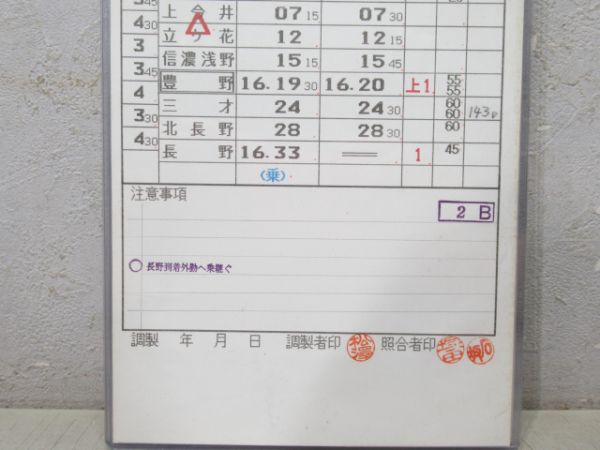 3 45
上今井 07 15 07 30
4 30
立ケ花 12 12 15
3
信濃浅野 15 15 15 45
3 45
豊野 16.19 30 16.20 上1 55 55
4
三才 24 24 30 60 60 143D
3 30
北長野 28 28 30 60
4 30
長野 16.33 1 45
(乗)
注意事項
2 B
○ 長野到着外勤へ乗継ぐ
調製 年 月 日 調製者印 照合者印